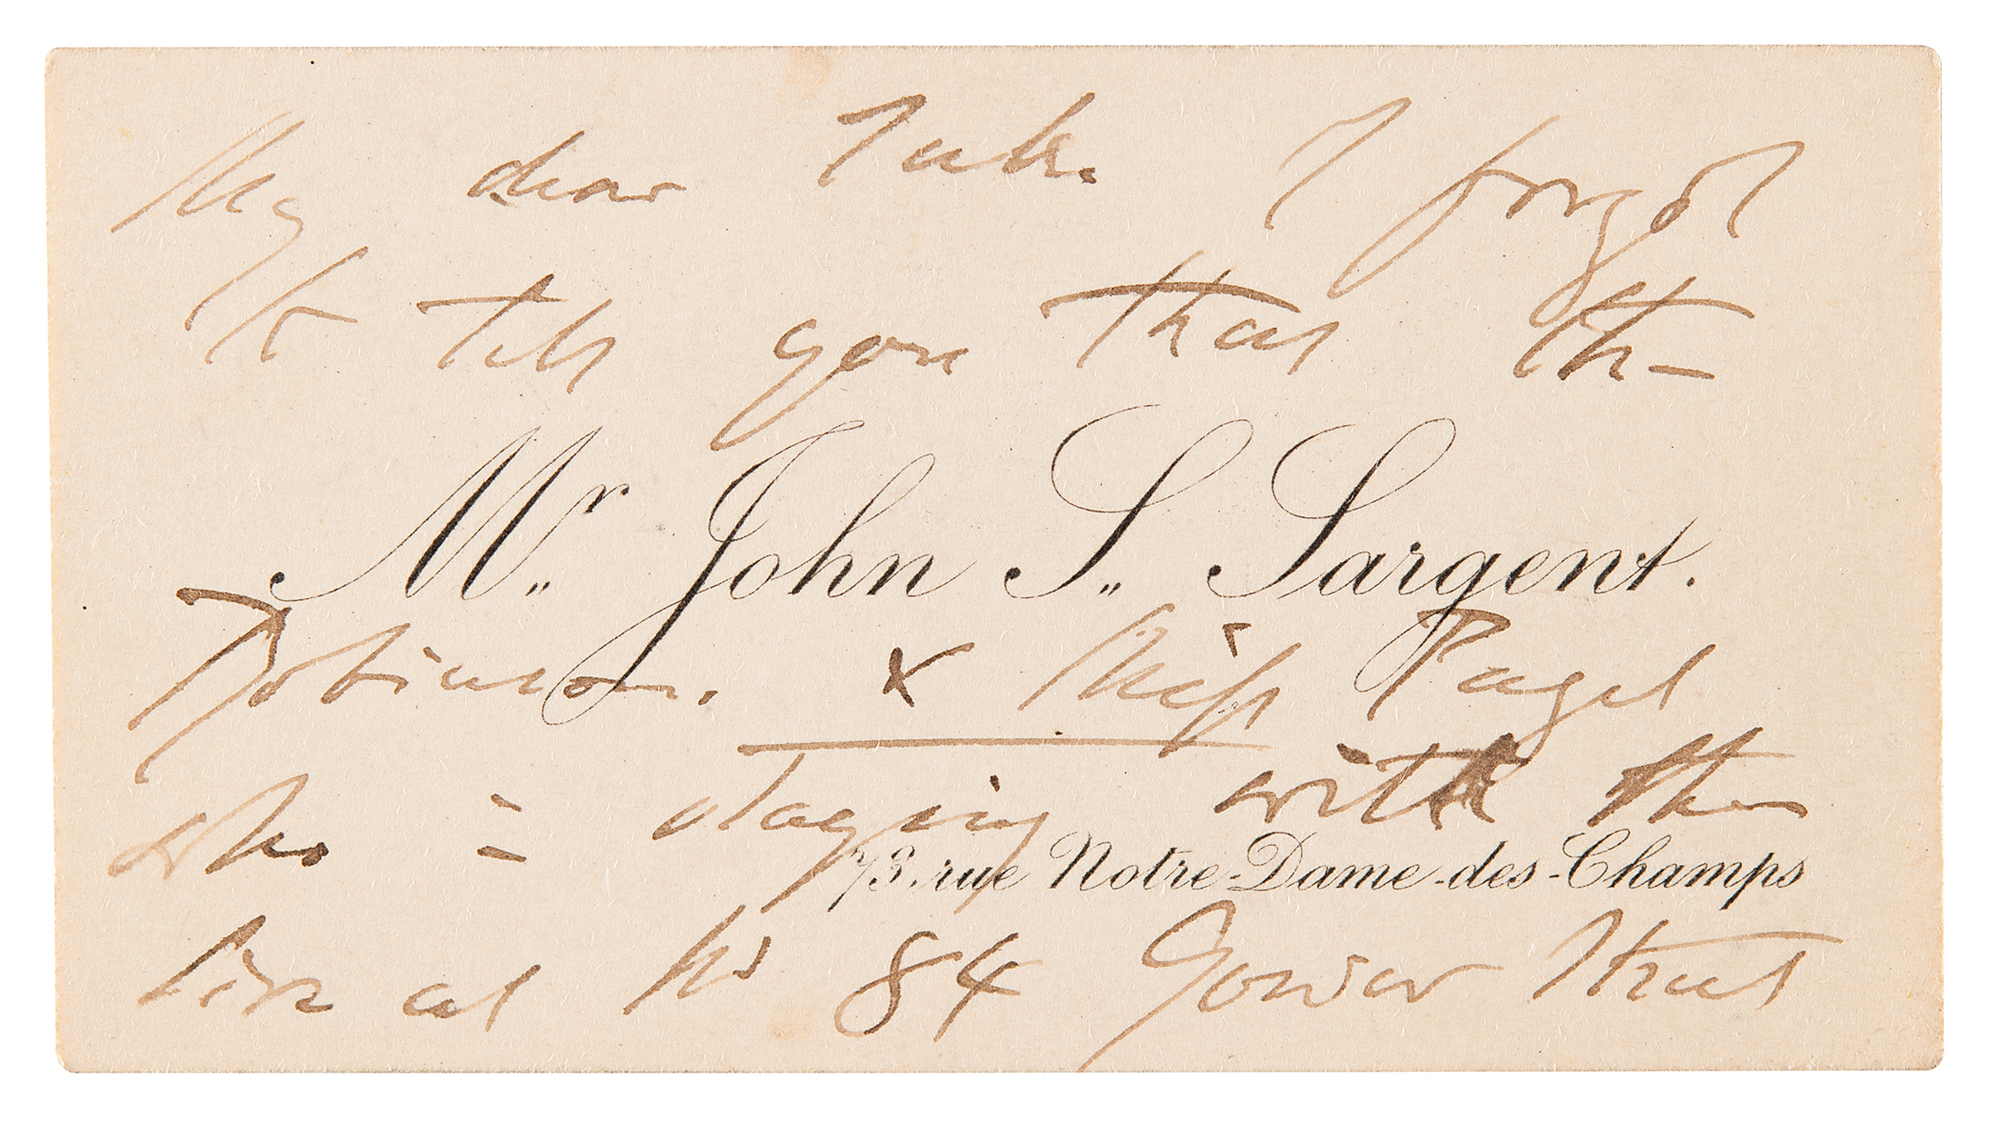 My dear Jule. I forgot
to tell you that the
Mr. John S. Sargent.
Robinson. x Miss Paget
who is staying with them
73. rue Notre-Dame-des-Champs
live at No 84 Gower Street